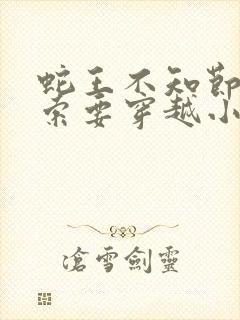 蛇王不知节
索要穿越小
沧雪劍靈